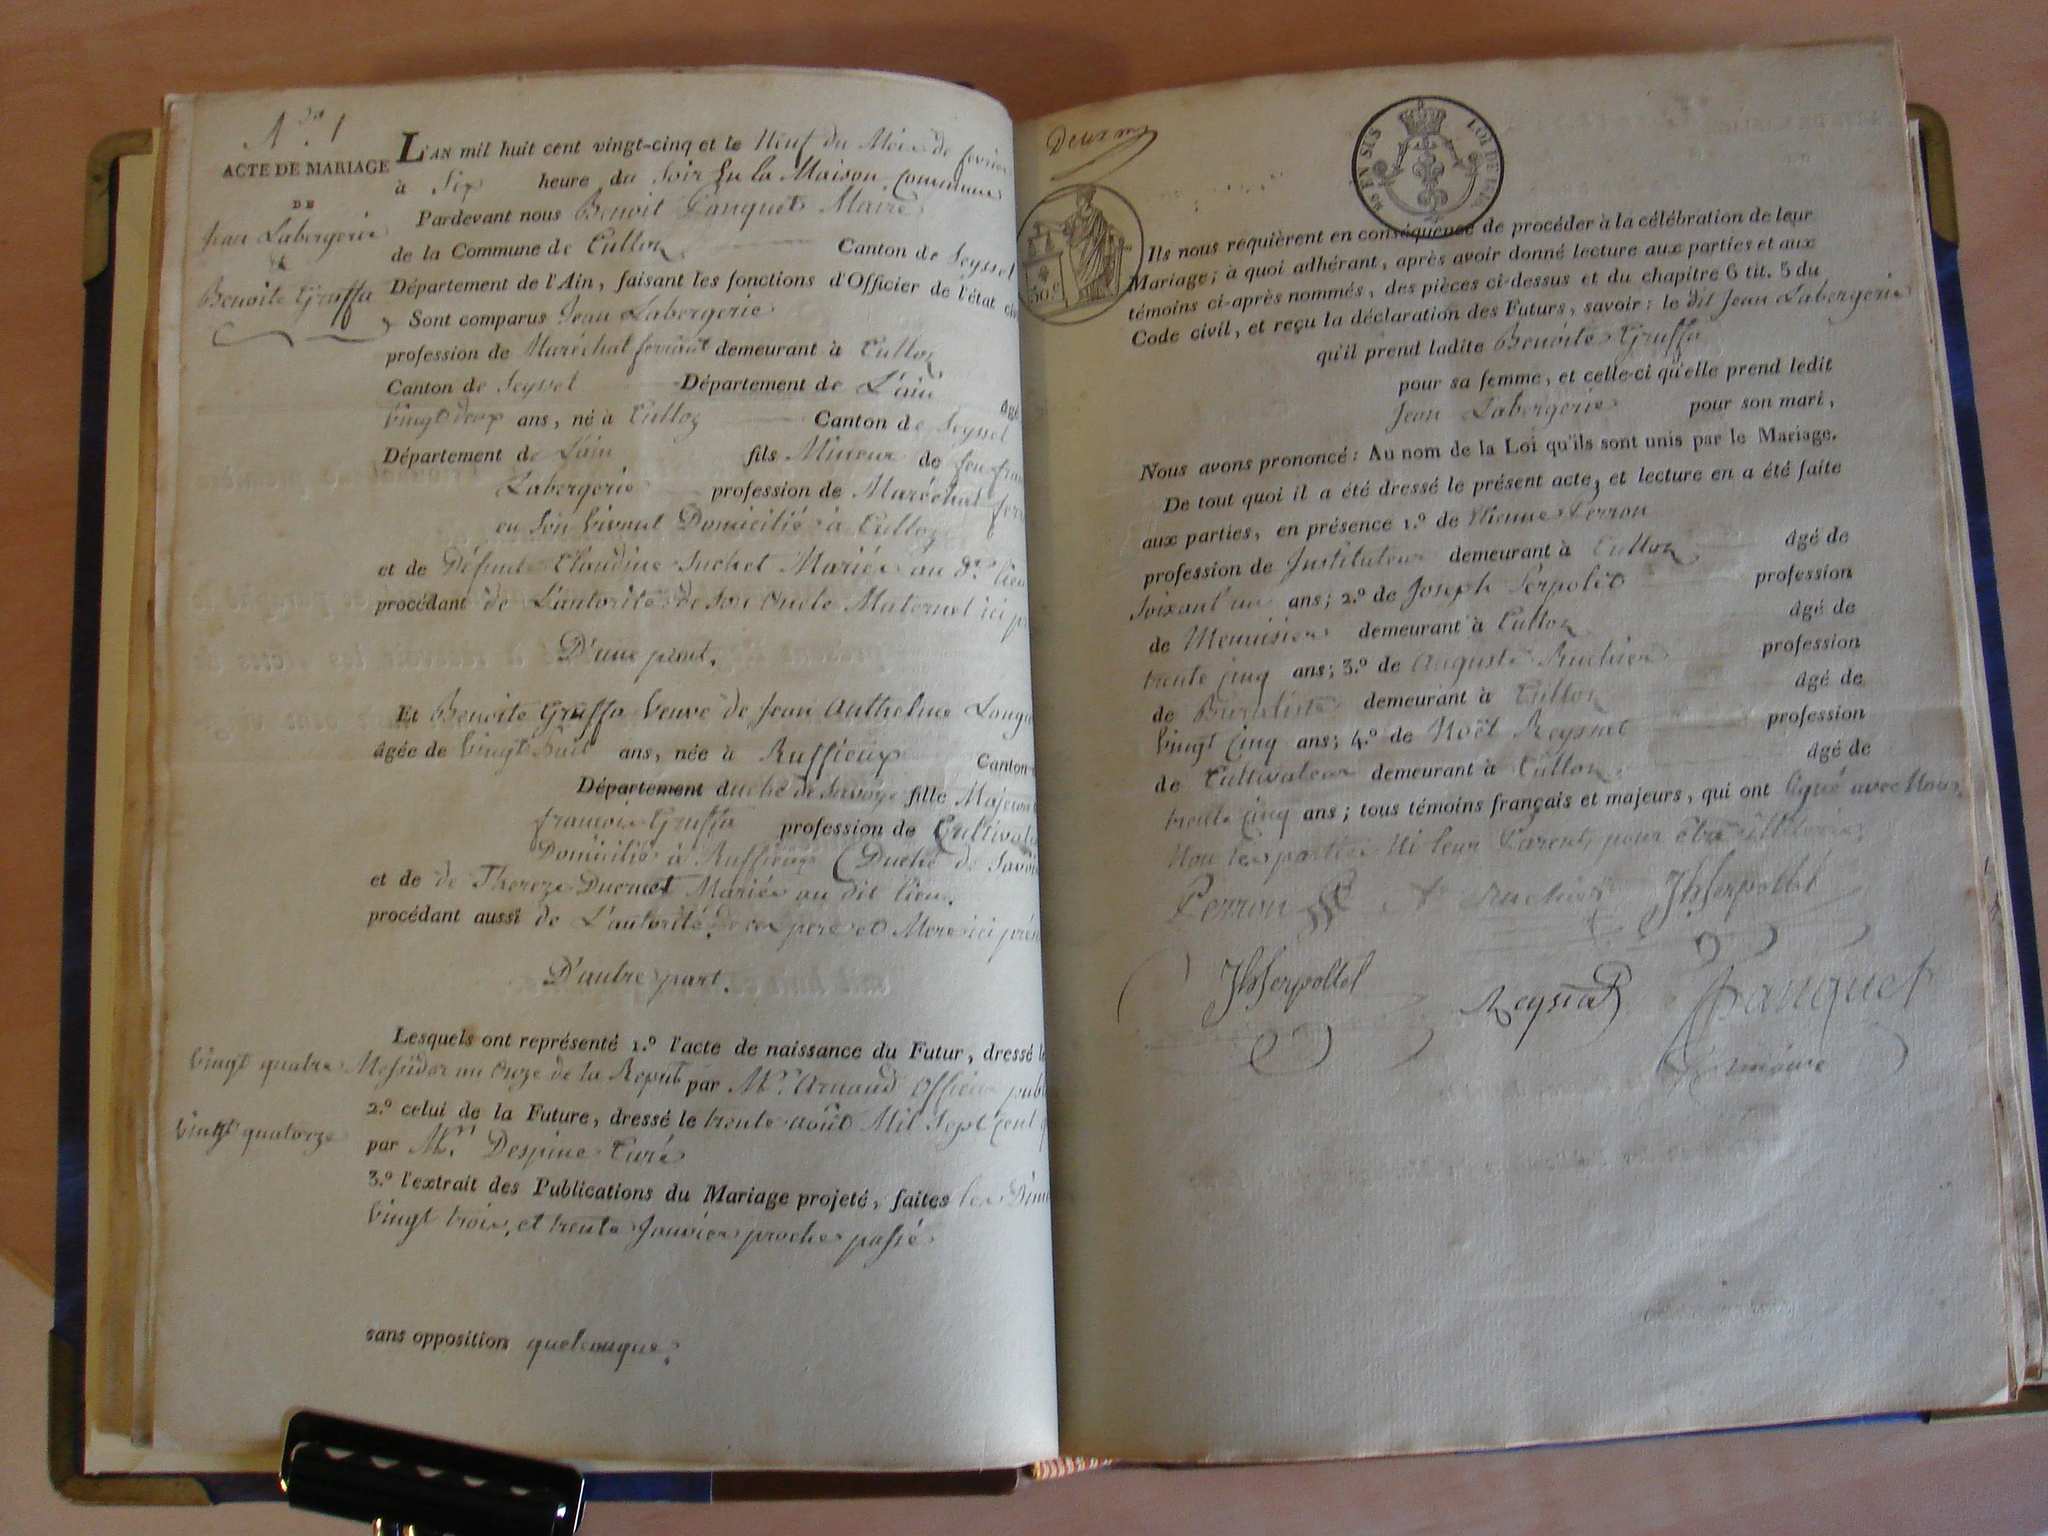 N.º 1
ACTE DE MARIAGE
DE
Jean Labergerie
&
Benoite Gruffa
L'AN mil huit cent vingt-cinq et le Neuf du Mois de fevrier
à Six heure du Soir En la Maison Commune
Pardevant nous Benoit Fanquet Maire
de la Commune de Culloz Canton de Seyssel
Département de l'Ain, faisant les fonctions d'Officier de l'état
Sont comparus Jean Labergerie
profession de Maréchal ferrant demeurant à Culloz
Canton de Seyssel Département de L'ain âgé
Vingt deux ans, né à Culloz Canton de Seyssel
Département de L'ain fils Mineur de feu
Labergerie profession de Maréchal
en Son Vivant Domicilié à Culloz
et de Défunte Claudine Suchet Mariés au dt. lieu
procédant de L'autorité de Son Oncle Maternel ici
D'une part.
Et Benoite Gruffa Veuve de Jean Anthelme
âgée de Vingt huit ans, née à Ruffieux Canton
Département duché de Savoye fille Majeure
françois Gruffa profession de
Domicilié à Ruffieux (Duché de
et de de Thereze Ducruet Mariés au dit lieu.
procédant aussi de L'autorité de ces pere et Mere ici
D'autre part.
Lesquels ont représenté 1.º l'acte de naissance du Futur, dressé
Vingt quatre Messidor an Onze de la Repub par Mr. Arnaud Officier
2.º celui de la Future, dressé le trente août Mil Sept Cent
Vingt quatorze
par Mr. Despine Curé
3.º l'extrait des Publications du Mariage projeté, faites les
Vingt trois, et trente Janvier proche passé
sans opposition quelconque.
LOI DE
30.c
Ils nous requièrent en conséquence de procéder à la célébration de leur
Mariage; à quoi adhérant, après avoir donné lecture aux parties et aux
témoins ci-après nommés, des pièces ci-dessus et du chapitre 6 tit. 5 du
Code civil, et reçu la déclaration des Futurs, savoir: le dit Jean Labergerie
qu'il prend ladite Benoite Gruffa
pour sa femme, et celle-ci qu'elle prend ledit
Jean Labergerie pour son mari,
Nous avons prononcé: Au nom de la Loi qu'ils sont unis par le Mariage.
De tout quoi il a été dressé le présent acte, et lecture en a été faite
aux parties, en présence 1.º de Etienne Perron
profession de Instituteur demeurant à Culloz âgé de
Soixant'un ans; 2.º de Joseph Serpolet profession
de Menuisier demeurant à Culloz âgé de
trente cinq ans; 3.º de Auguste Ruchier profession
de Buraliste demeurant à Culloz âgé de
Vingt cinq ans; 4.º de Noël Reysset profession
de Cultivateur demeurant à Culloz âgé de
trente cinq ans; tous témoins français et majeurs, qui ont signé avec Nous
Non les parties Ni leur Parents pour être illiterés
Perron Ruchier JhSerpollet
JhSerpollet Fanquet